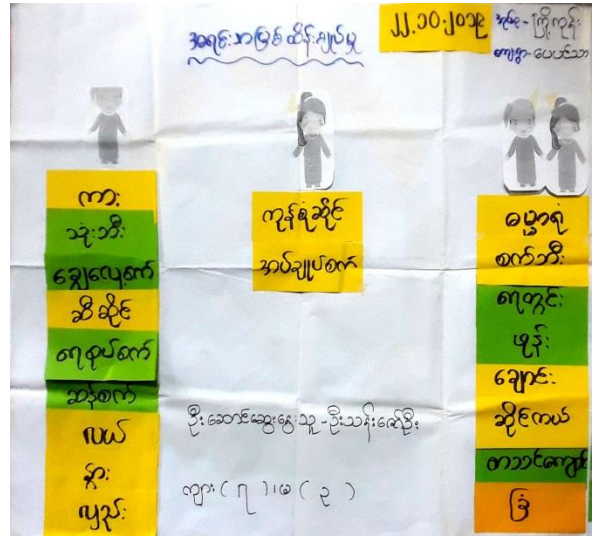 အရင်းအမြစ်ထိန်းချုပ်မှု
၂၂.၁၀.၂၀၁၉
အုပ်စု - ကြို့ကုန်း
ကျေးရွာ - ပေပင်သာ
ကား
သုံးဘီး
ခြွေလှေ့စက်
ဆီဆိုင်
ရေစုပ်စက်
ဆန်စက်
လယ်
နွား
လှည်း
ကုန်စုံဆိုင်
အပ်ချုပ်စက်
ဓမ္မာရုံ
စက်ဘီး
ရေတွင်း
ဖုန်း
ချောင်း
ဆိုင်ကယ်
စာသင်ကျောင်း
ခြံ
ဦးဆောင်ဆွေးနွေးသူ - ဦးသန်းဇော်ဦး
ကျား ( ၇ ) ၊ မ ( ၃ )